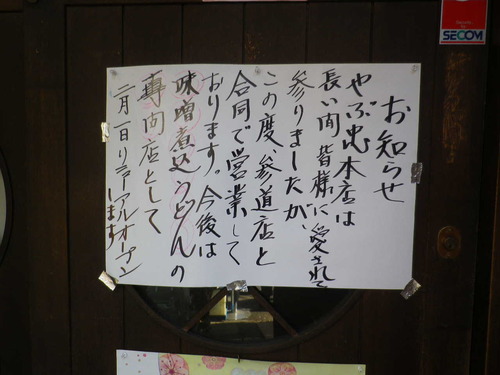 お知らせ
やぶ忠本店は
長い間皆様に愛されて
参りましたが、
この度、参道店と
合同で営業して
おります。今後は
味噌煮込うどんの
専门店として
二月一日リニューアルオープン
します
SECOM